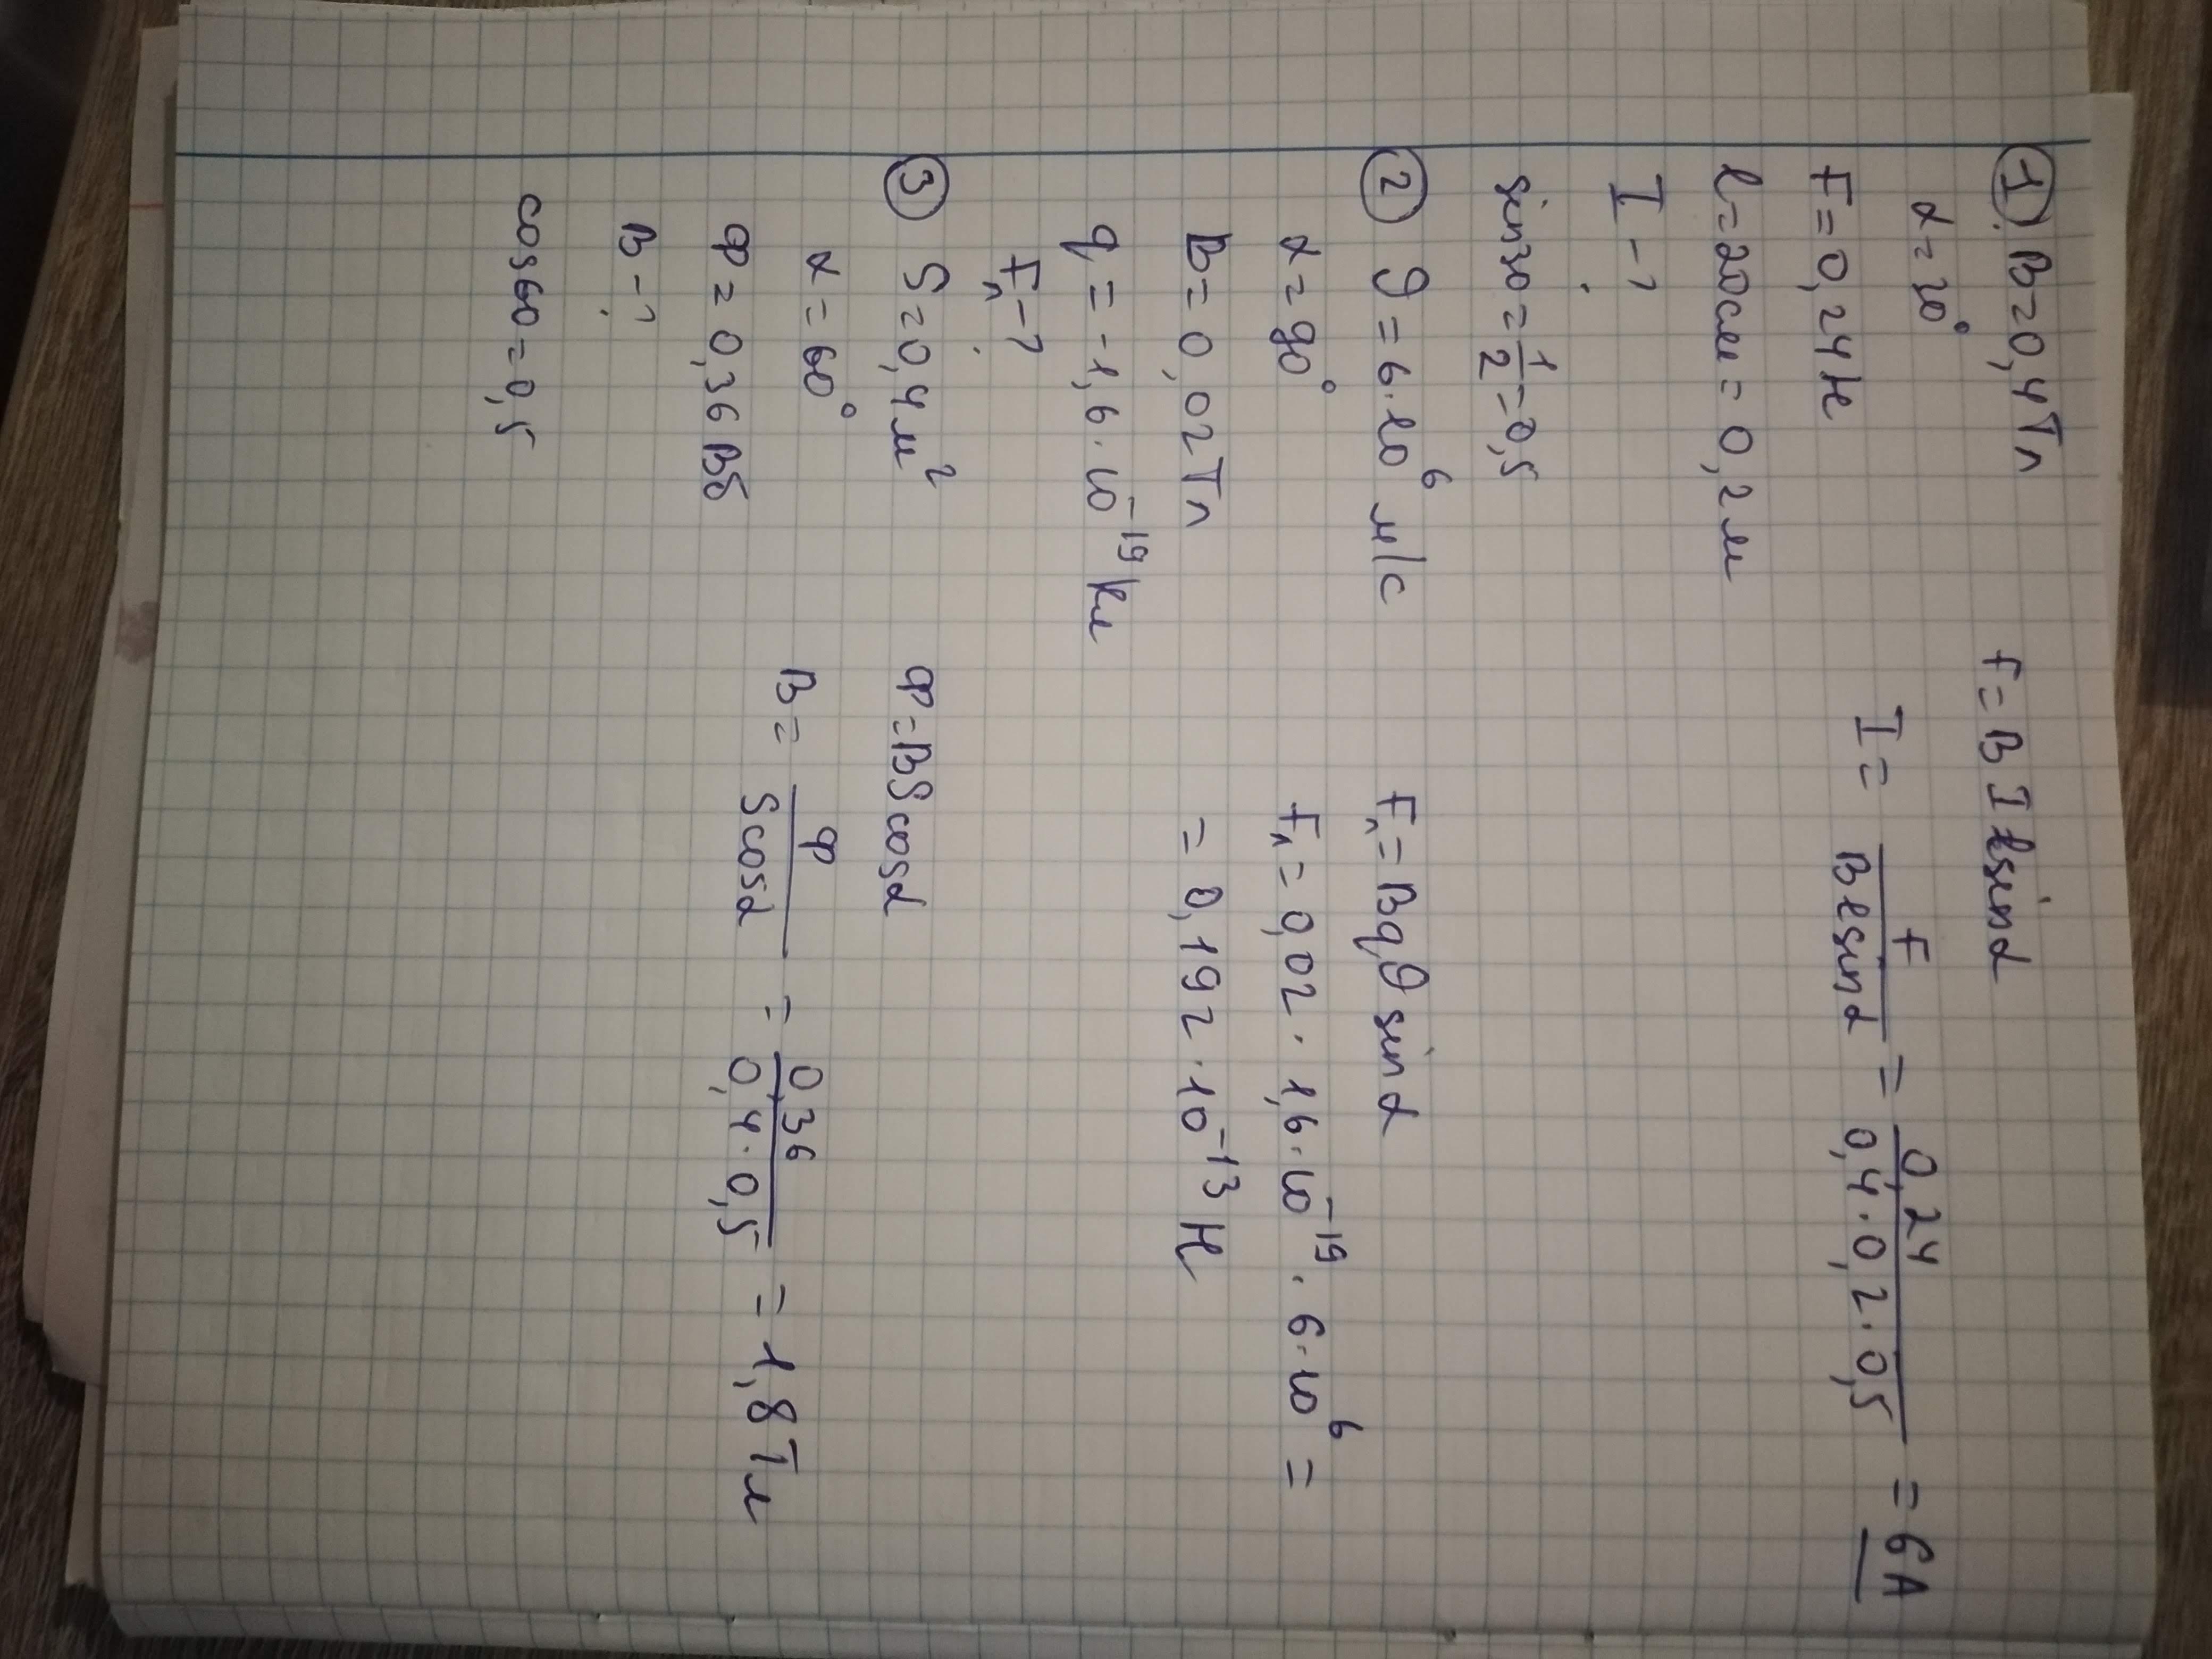 ① B=0,4Тл
α=30°
F=0,24Н
l=20см=0,2м
I-?
sin30=1/2=0,5
F=BIlsinα
I= F/Blsinα = 0,24/0,4·0,2·0,5 = 6А
② ϑ=6·10⁶ м/с
α=90°
B=0,02Тл
q=-1,6·10⁻¹⁹Кл
Fл-?
Fл=Bqϑsinα
Fл=0,02·1,6·10⁻¹⁹·6·10⁶=
=0,192·10⁻¹³Н
③ S=0,4м²
α=60°
Ф=0,36Вб
B-?
cos60=0,5
Ф=BScosα
B= Ф/Scosα = 0,36/0,4·0,5 = 1,8Тл